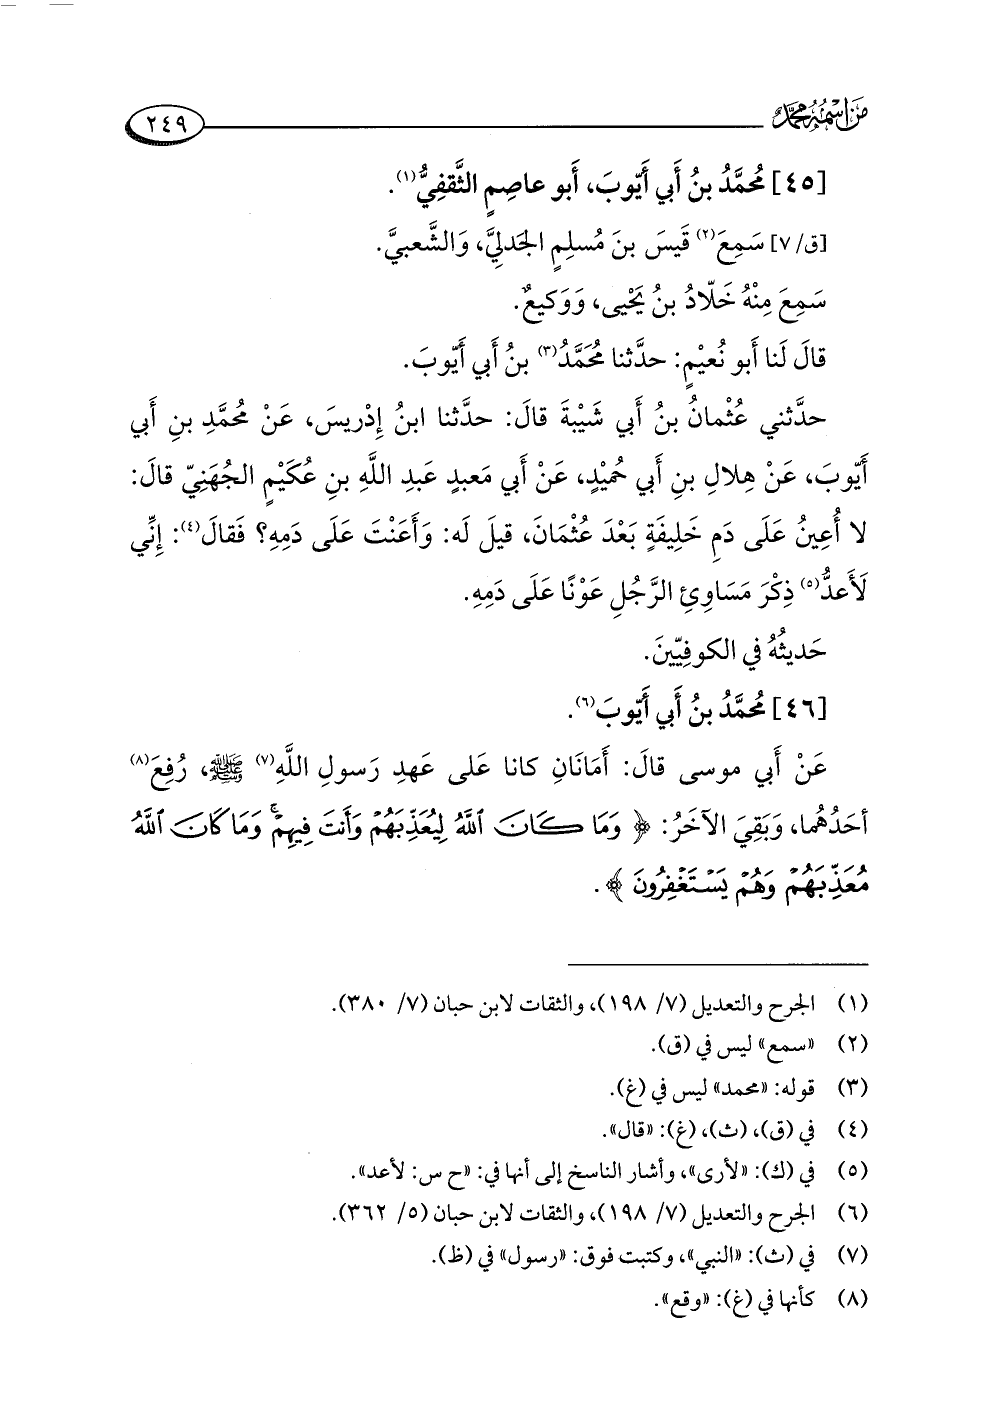 مَن اسْمُهُ مُحَمَّدٌ
٢٤٩
[٤٥] مُحَمَّدُ بنُ أَبي أَيّوبَ، أَبو عاصِمٍ الثَّقفِيُّ(١).
[ق/ ٧] سَمِعَ(٢) قَيسَ بنَ مُسلِمٍ الجَدليَّ، وَالشَّعبيَّ.
سَمِعَ مِنْهُ خَلّادُ بنُ يَحْيى، وَوَكيعٌ.
قالَ لَنا أَبو نُعيْمٍ: حدَّثنا مُحَمَّدُ(٣) بنُ أَبي أَيّوبَ.
حدَّثني عُثْمانُ بنُ أَبي شَيْبةَ قالَ: حدَّثنا ابنُ إِدْريسَ، عَنْ مُحمَّدِ بنِ أَبي
أَيّوبَ، عَنْ هِلالِ بنِ أَبي حُميْدٍ، عَنْ أَبي مَعبدٍ عَبدِ اللَّهِ بنِ عُكَيْمٍ الجُهَنِيّ قالَ:
لا أُعِينُ عَلَى دَمِ خَلِيفَةٍ بَعْدَ عُثْمَانَ، قيلَ لَه: وَأَعَنْتَ عَلَى دَمِهِ؟ فَقالَ(٤): إِنِّي
لَأَعدُّ(٥) ذِكْرَ مَسَاوِئِ الرَّجُلِ عَوْنًا عَلَى دَمِهِ.
حَديثُهُ في الكوفِيّينَ.
[٤٦] مُحَمَّدُ بنُ أَبي أَيّوبَ(٦).
عَنْ أَبي موسى قالَ: أَمَانَانِ كانا عَلى عَهدِ رَسولِ اللَّهِ(٧) ﷺ، رُفِعَ(٨)
أَحَدُهُما، وَبَقِيَ الآخَرُ: ﴿ وَمَا كَانَ ٱللَّهُ لِيُعَذِّبَهُمْ وَأَنتَ فِيهِمْ ۚ وَمَا كَانَ ٱللَّهُ
مُعَذِّبَهُمْ وَهُمْ يَسْتَغْفِرُونَ ﴾.
(١) الجرح والتعديل (٧/ ١٩٨)، والثقات لابن حبان (٧/ ٣٨٠).
(٢) «سمع» ليس في (ق).
(٣) قوله: «محمد» ليس في (غ).
(٤) في (ق)، (ث)، (غ): «قال».
(٥) في (ك): «لأرى»، وأشار الناسخ إلى أنها في: «ح س: لأعد».
(٦) الجرح والتعديل (٧/ ١٩٨)، والثقات لابن حبان (٥/ ٣٦٢).
(٧) في (ث): «النبي»، وكتبت فوق: «رسول» في (ظ).
(٨) كأنها في (غ): «وقع».